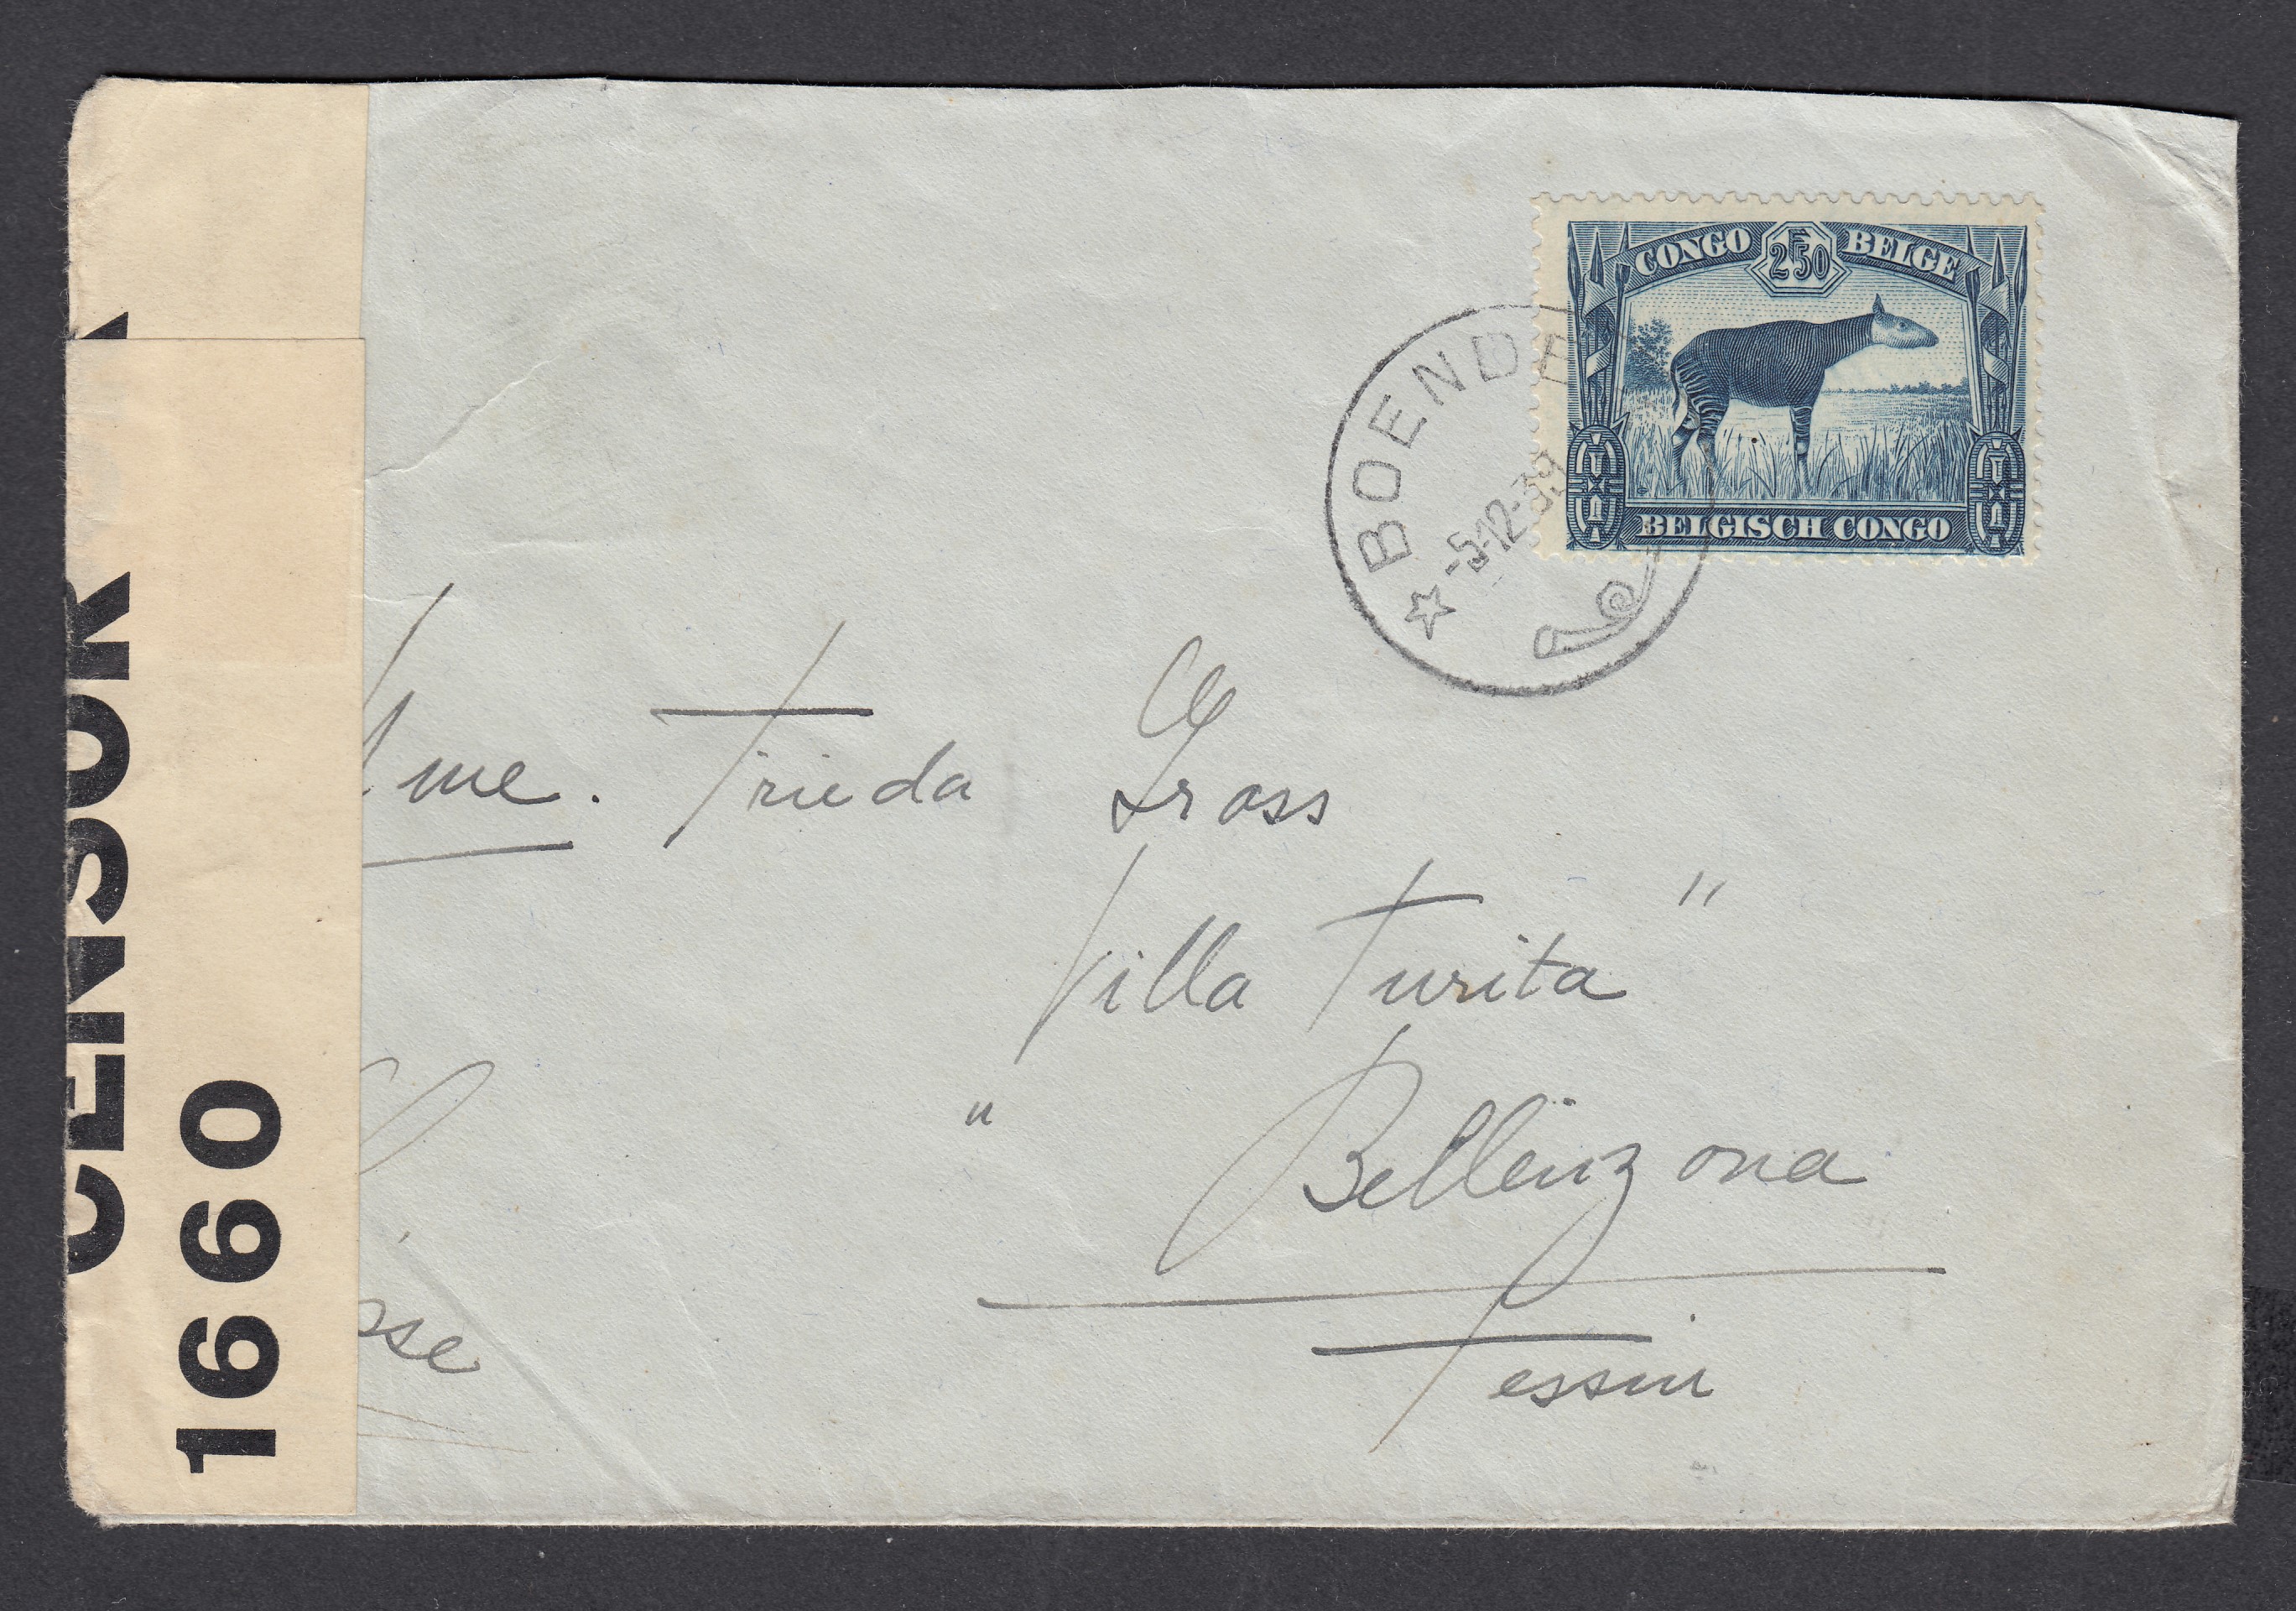 CONGO BELGE
F
2.50
BELGISCH CONGO
BOENDE
-5-12-39
CENSOR
1660
Mme. Frieda Gross
Villa Turita"
" Bellinzona
Tessin